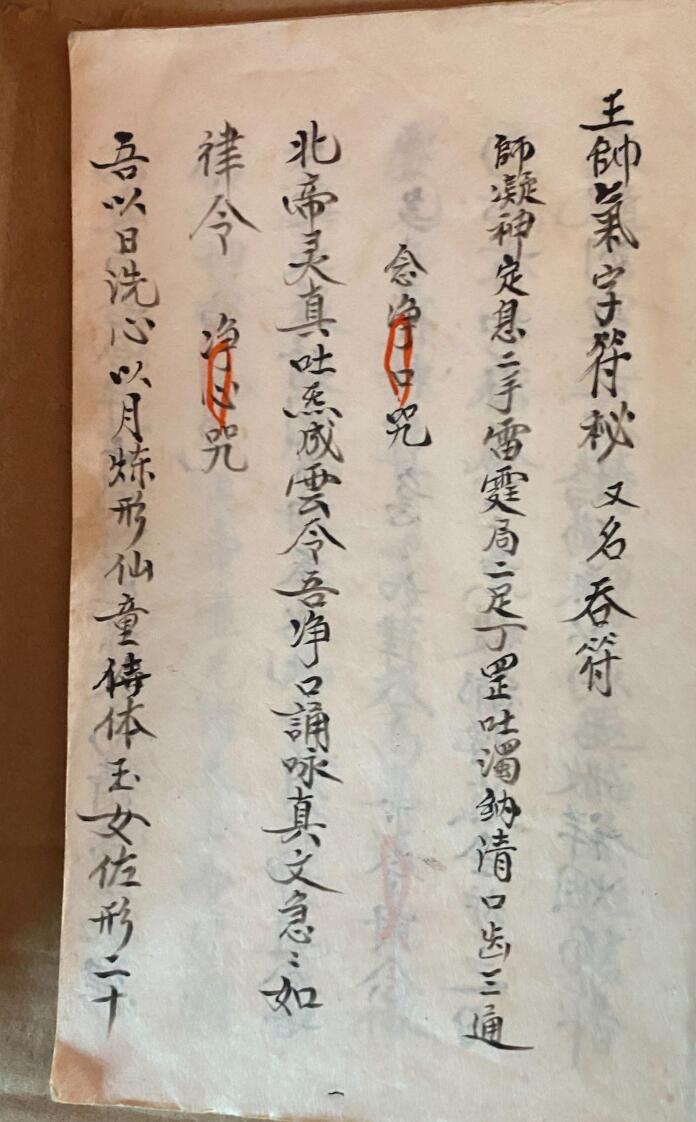 王帥氣字符秘 又名吞符
師凝神定息二手雷霆局二足丁罡吐濁納清口齒三通
念净口咒
北帝灵真吐炁成雲令吾净口誦咏真文急〻如
律令 净心咒
吾以日洗心以月炼形仙童侍体玉女佐形二十